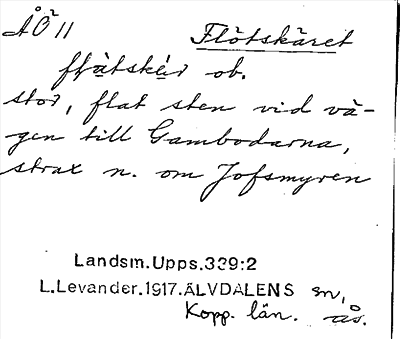 ÅÖ 11 Flötskäret
ob.
stor, flat sten vid vä-
gen till Gambodarna,
strax n. om Jofsmyren
Landsm.Upps.339:2
L.Levander.1917.ÄLVDALENS sn,
Kopp. län. ås.